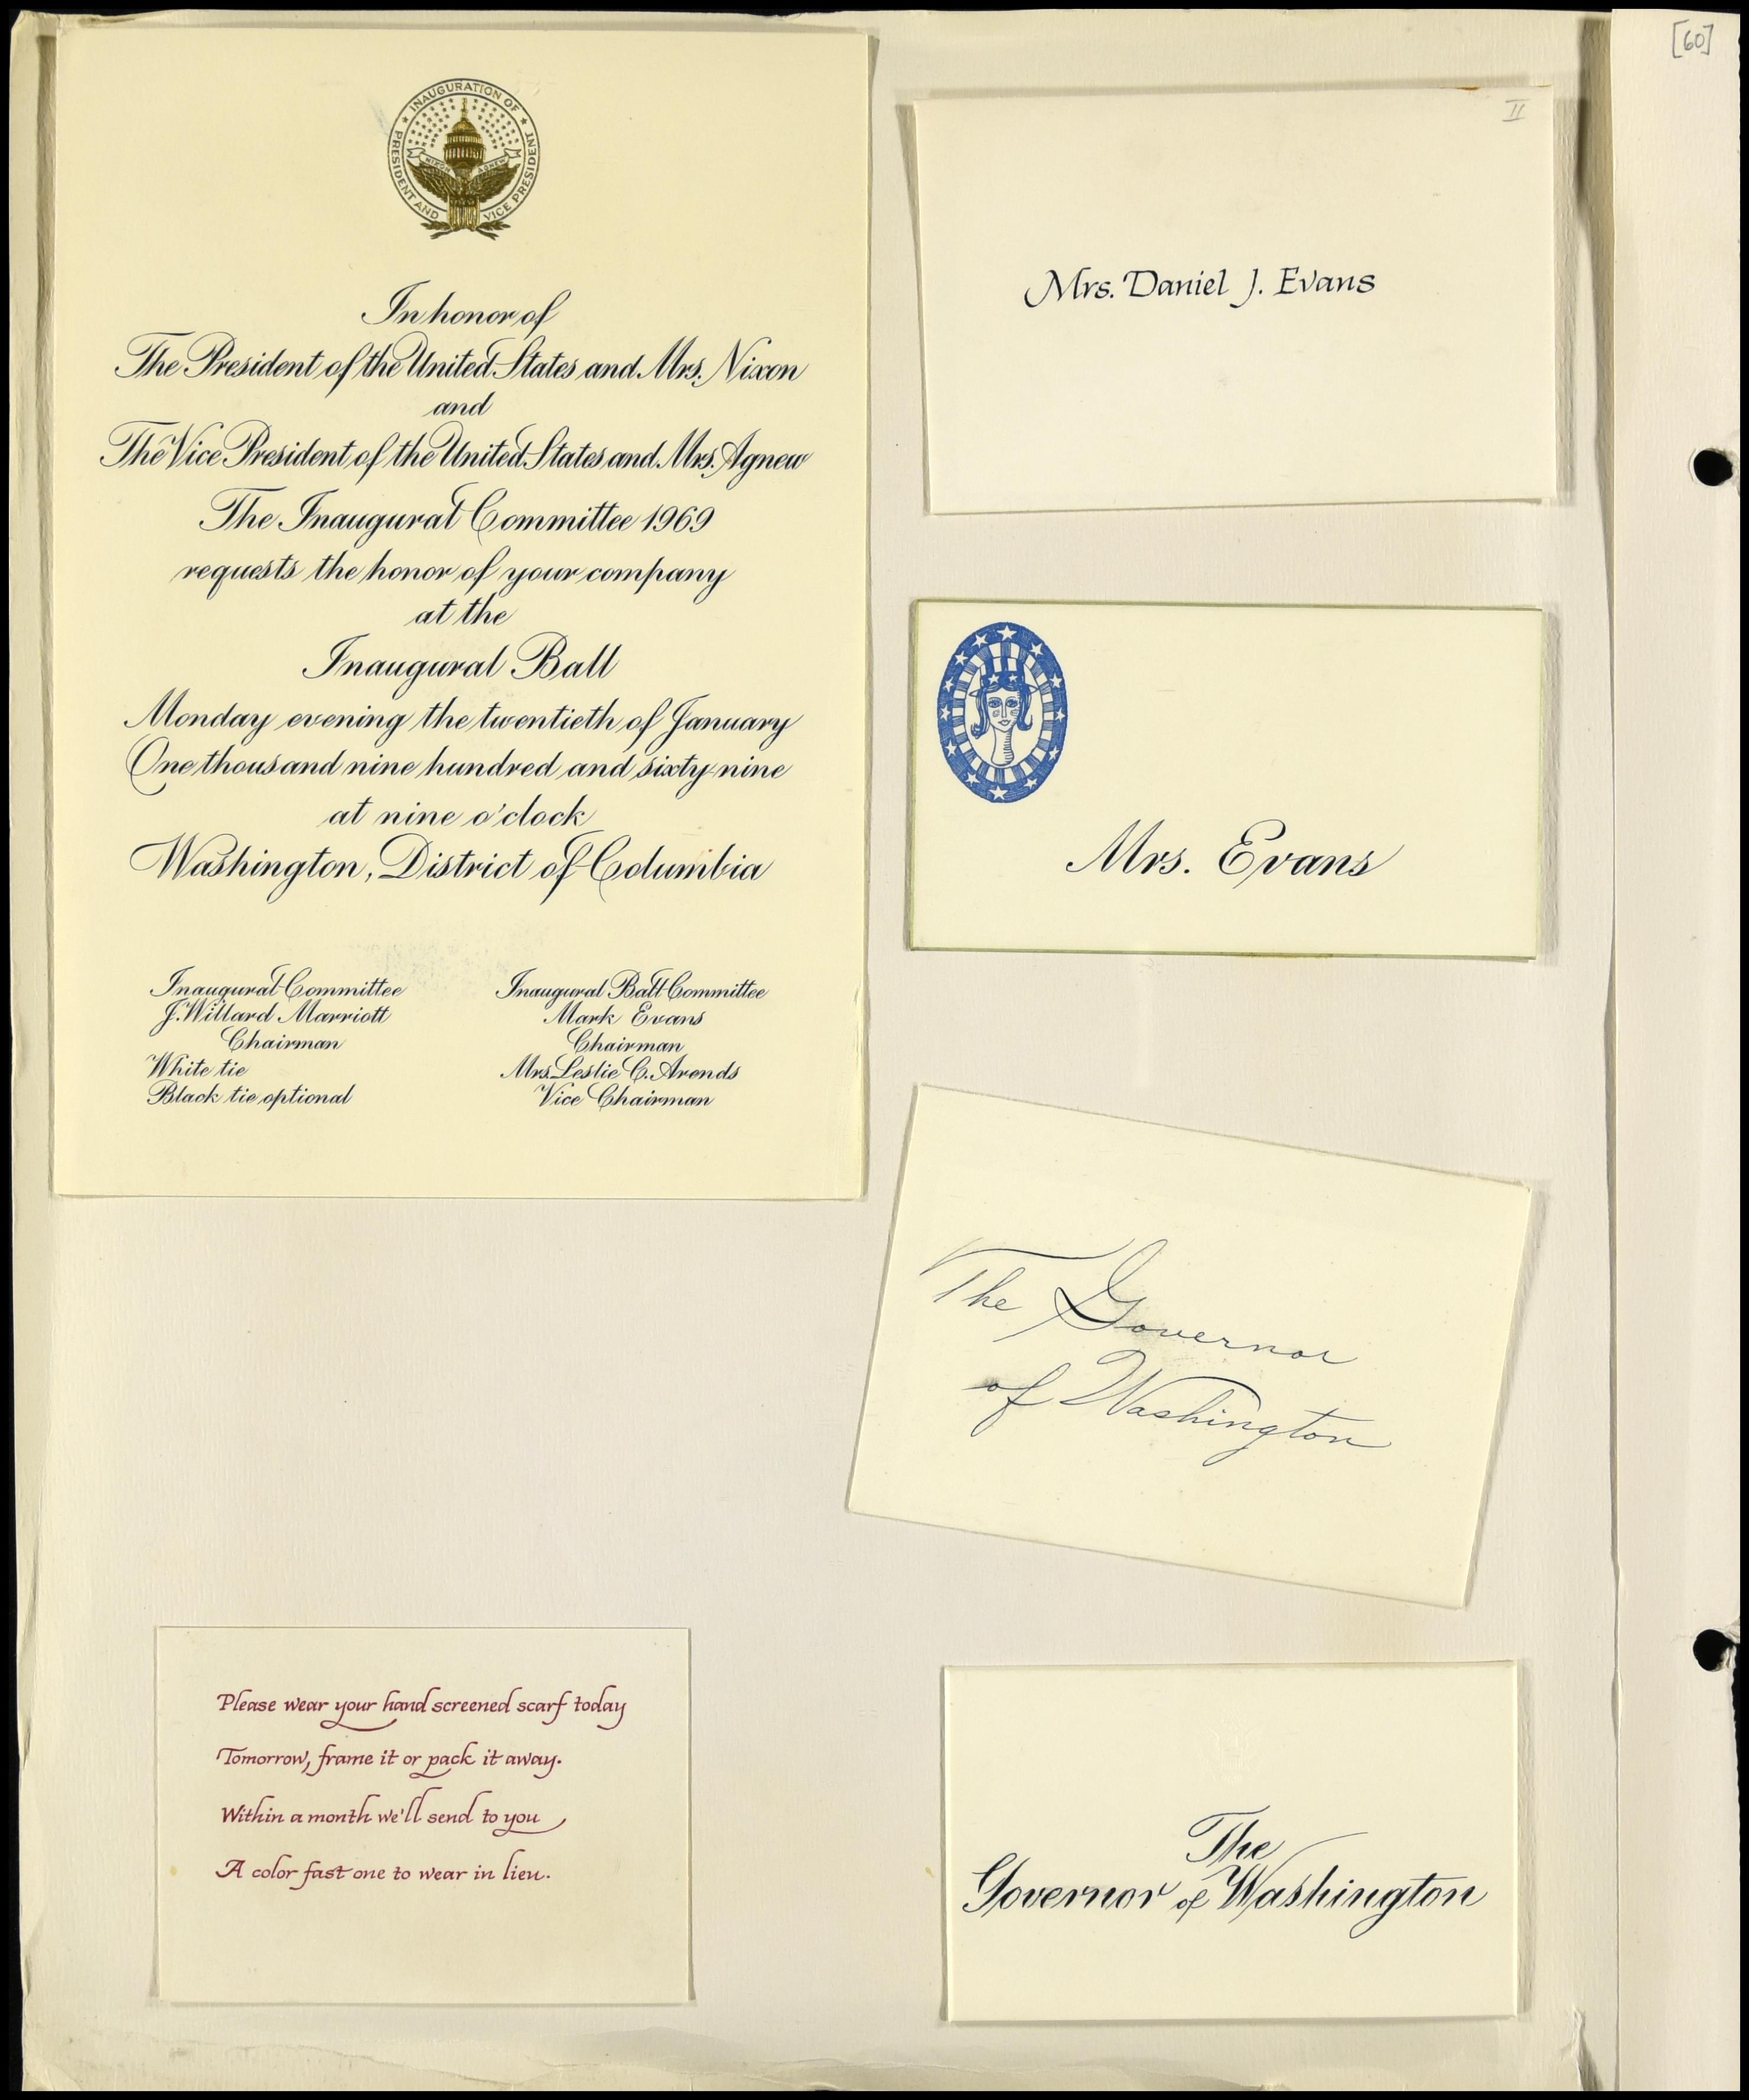 INAUGURATION OF
PRESIDENT AND VICE PRESIDENT
NIXON AGNEW
In honor of
The President of the United States and Mrs. Nixon
and
The Vice President of the United States and Mrs. Agnew
The Inaugural Committee 1969
requests the honor of your company
at the
Inaugural Ball
Monday evening the twentieth of January
One thousand nine hundred and sixty-nine
at nine o'clock
Washington, District of Columbia
Inaugural Committee
J. Willard Marriott
Chairman
White tie
Black tie optional
Inaugural Ball Committee
Mark Evans
Chairman
Mrs. Leslie C. Arends
Vice Chairman
Please wear your hand screened scarf today
Tomorrow, frame it or pack it away.
Within a month we'll send to you
A color fast one to wear in lieu.
[60]
II
Mrs. Daniel J. Evans
Mrs. Evans
The Governor
of Washington
The
Governor of Washington